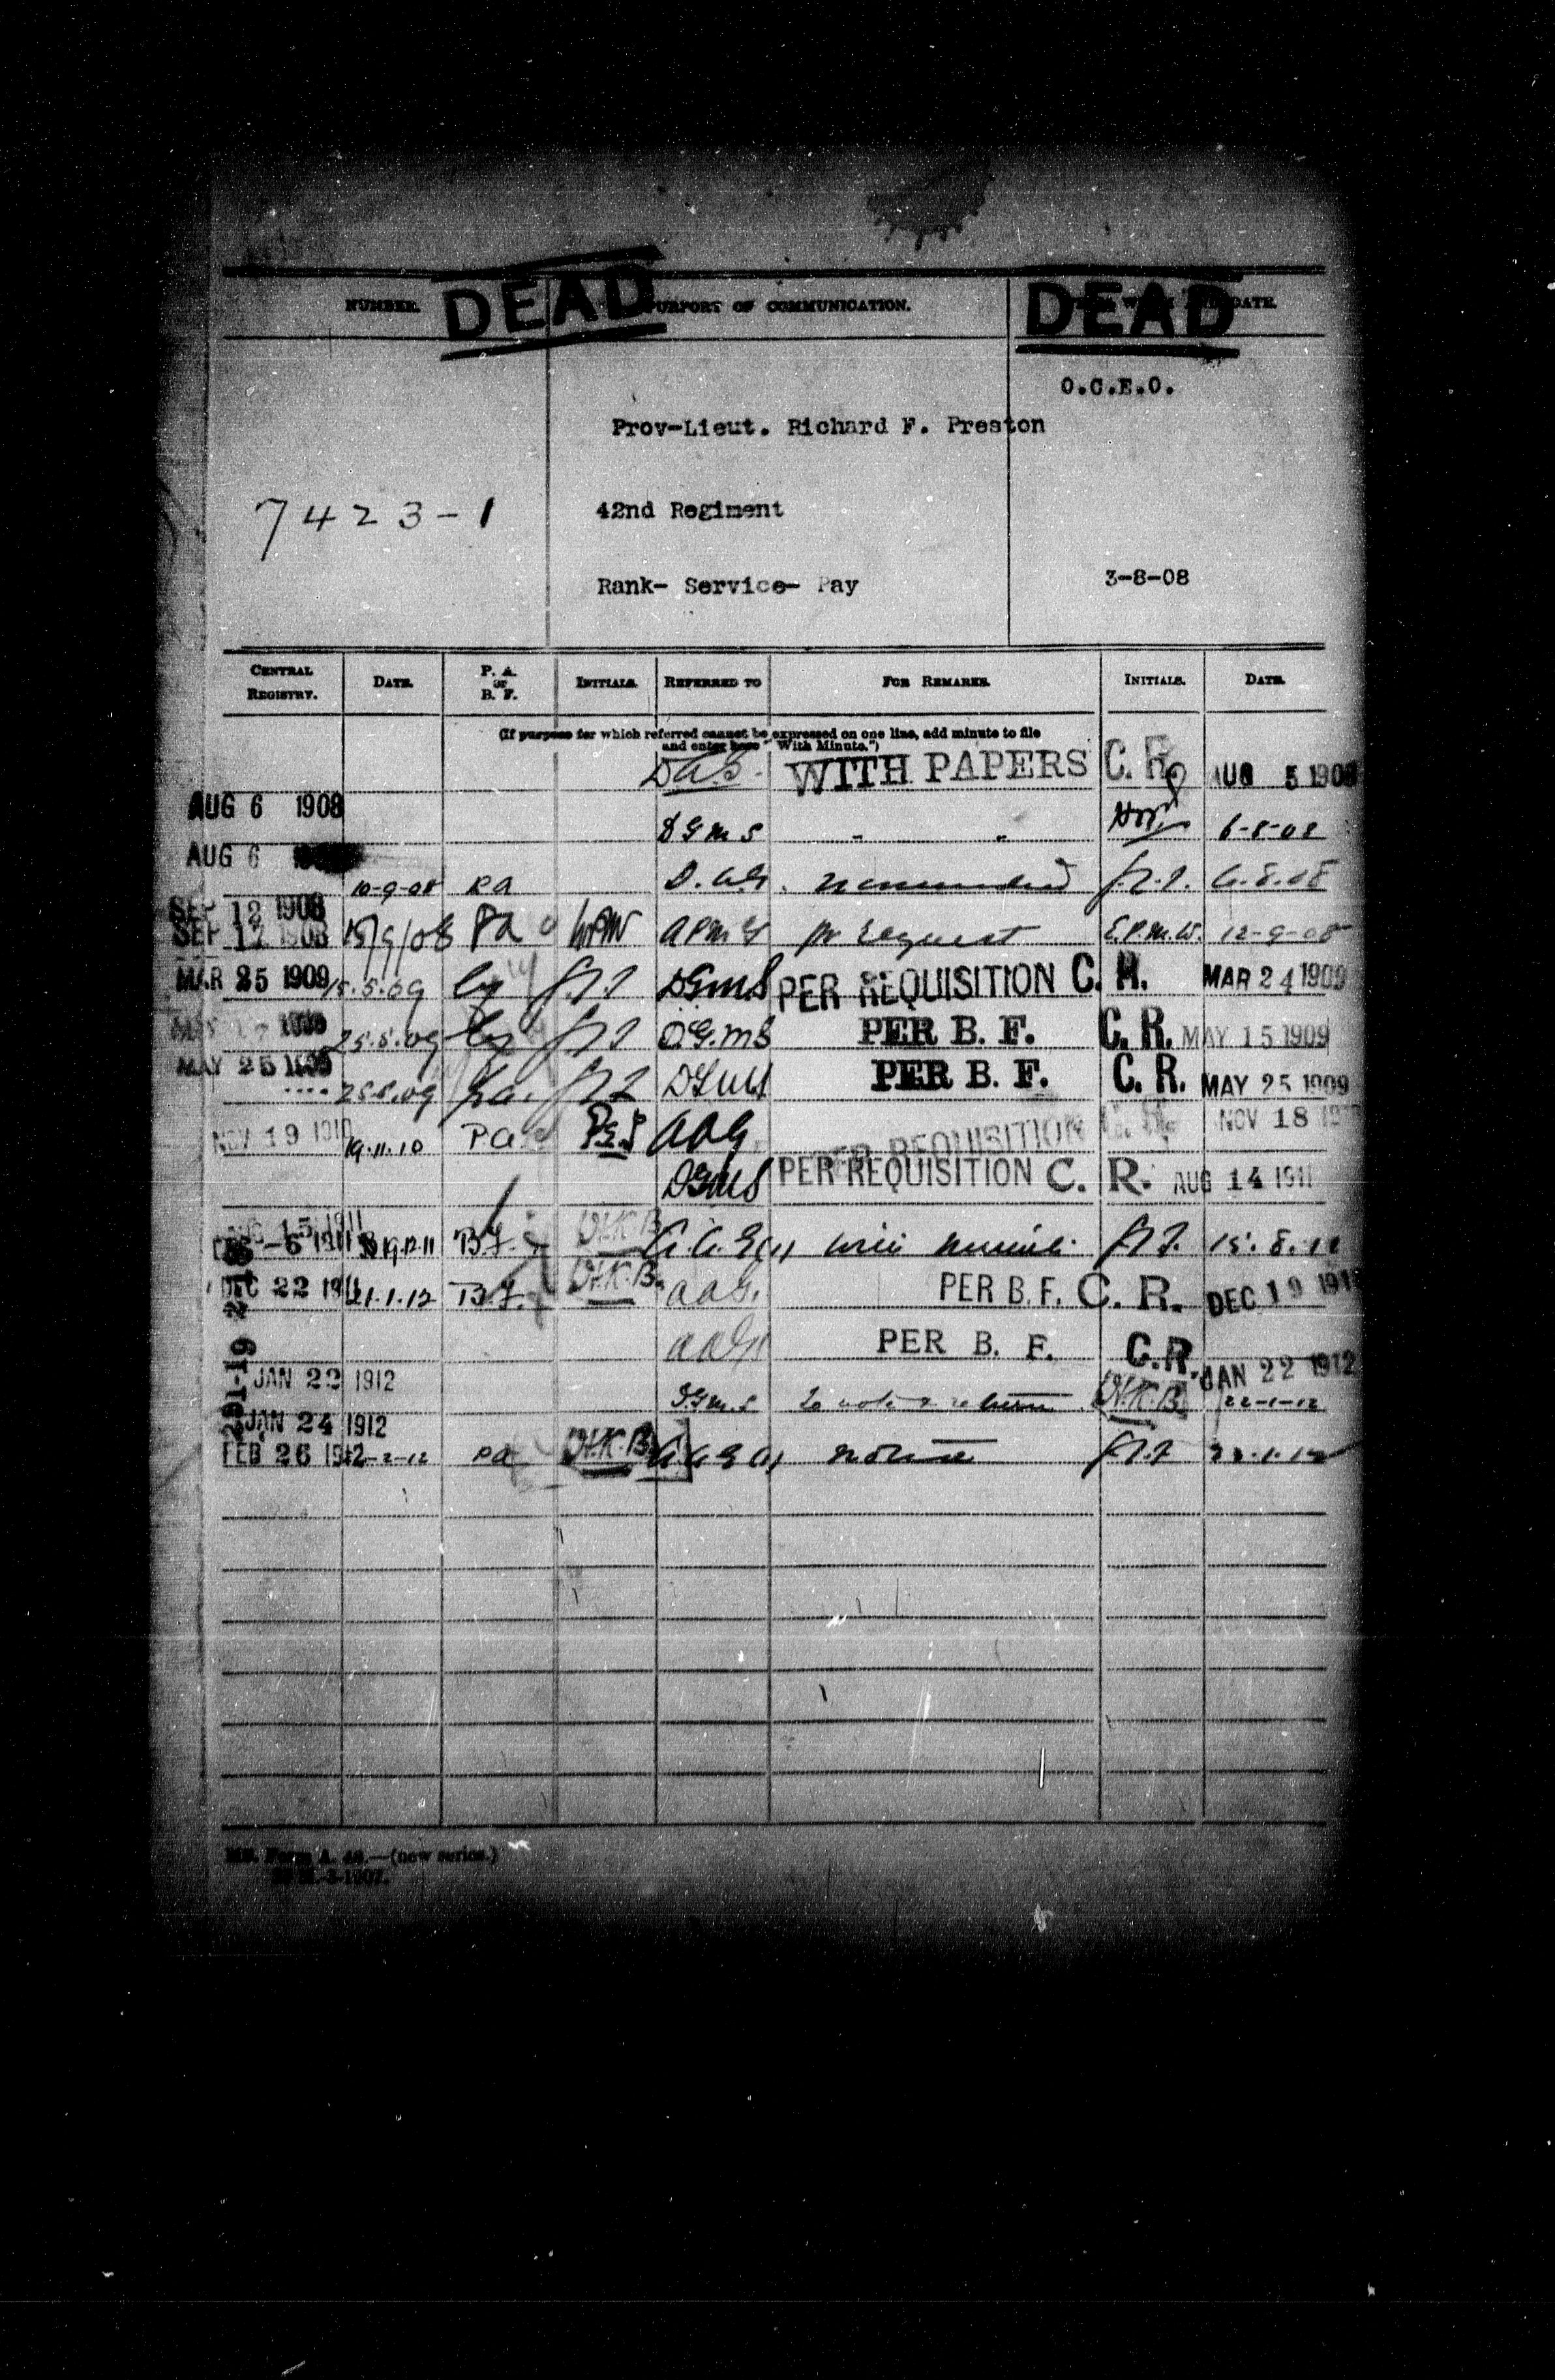 NUMBER. DEAD PURPORT OF COMMUNICATION. DEAD DATE.
O.C.E.O.
Prov-Lieut. Richard F. Preston
7423-1 42nd Regiment
Rank- Service- Pay 3-8-08
CENTRAL REGISTRY. DATE. P. A. or B. F. INITIALS. REFERRED TO FOR REMARKS. INITIALS. DATE.
(If purpose for which referred cannot be expressed on one line, add minute to file
and enter here "With Minute.")
WITH PAPERS C. R. AUG 5 1908
AUG 6 1908
DGMS " " 6-8-08
AUG 6
10-9-08 PA D.A.G. 6.8.08
SEP 12 1908
SEP 12 1908 15/9/08 Pa per request 12-9-08
MAR 25 1909 15.5.09 DGMS PER REQUISITION C. R. MAR 24 1909
25.5.09 DGMS PER B. F. C. R. MAY 15 1909
MAY 25 1909
25.5.09 pa. DGMS PER B. F. C. R. MAY 25 1909
NOV 19 1910 19.11.10 Pa AAG PER REQUISITION NOV 18
DGMS PER REQUISITION C. R. AUG 14 1911
15 1911
B.F. W.K.B. 15.8.11
DEC 22 21.1.12 B.F. W.K.B. AAG. PER B. F. C. R. DEC 19
AAG PER B. F. C. R. JAN 22 1912
JAN 22 1912
DGMS to note & return W.K.B. 22-1-12
JAN 24 1912
FEB 26 1912 PA W.K.B. noted
(new series.)